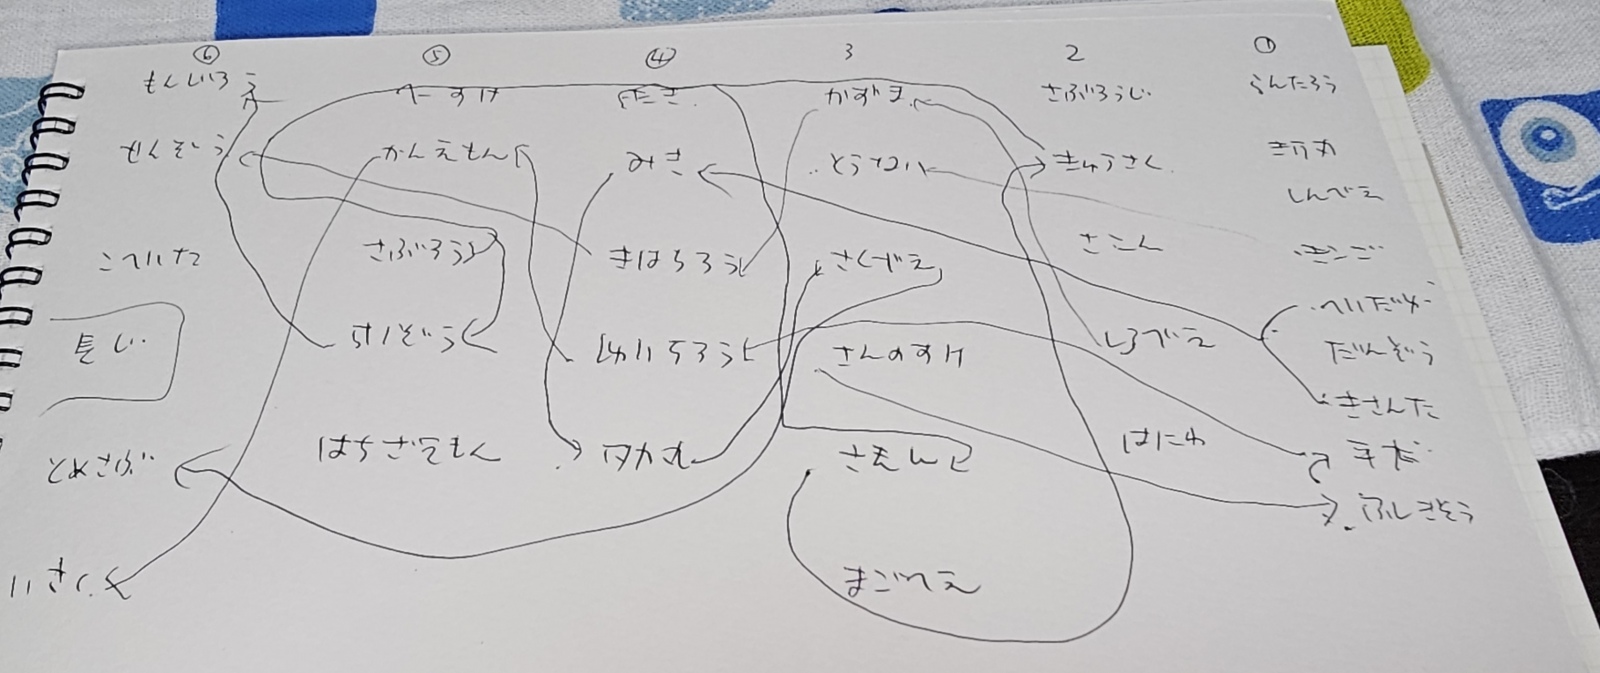 ⑥ ⑤ ④ 3 2 ①
もんじろう へーすけ かずま さぶろうじ らんたろう
せんぞう かんえもん みき とうない きゅうさく きりまる
しんべえ
こへいた さぶろう きはちろう さくべえ さこん きんご
長じ けいぞう しゅいちろう さんのすけ しろべえ へいだゆう
だんぞう
きさんた
とめさぶ はちざえもん タカ丸 さえんじ はにわ 手だ
ふしきぞう
いさく まごへえ